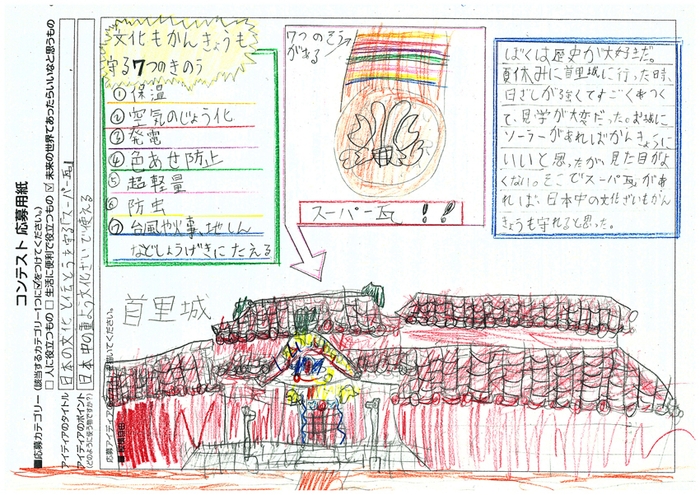 コンテスト 応募用紙
■応募カテゴリー (該当するカテゴリー1つに☑をつけてください。)
□ 人に役立つもの □ 生活に便利で役立つもの ☑ 未来の世界であったらいいなと思うもの
アイディアのタイトル 日本の文化と伝とうを守る「スーパー瓦」
アイディアのポイント
(どのように使う物ですか?)
日本中の重よう文化ざいで使える
文化もかんきょうも
守る7つのきのう
① 保温
② 空気のじょう化
③ 発電
④ 色あせ防止
⑤ 超軽量
⑥ 防虫
⑦ 台風や火事、地しん
などしょうげきにたえる
7つのそう
がある
スーパー瓦!!
ぼくは歴史が大好きだ。
夏休みに首里城に行った時、
日ざしが強くてすごくあつく
て、見学が大変だった。お城に
ソーラーがあればかんきょうに
いいと思ったが、見た目がよ
くない。そこでスーパー瓦があ
れば、日本中の文化ざいもかん
きょうも守れると思った。
首里城